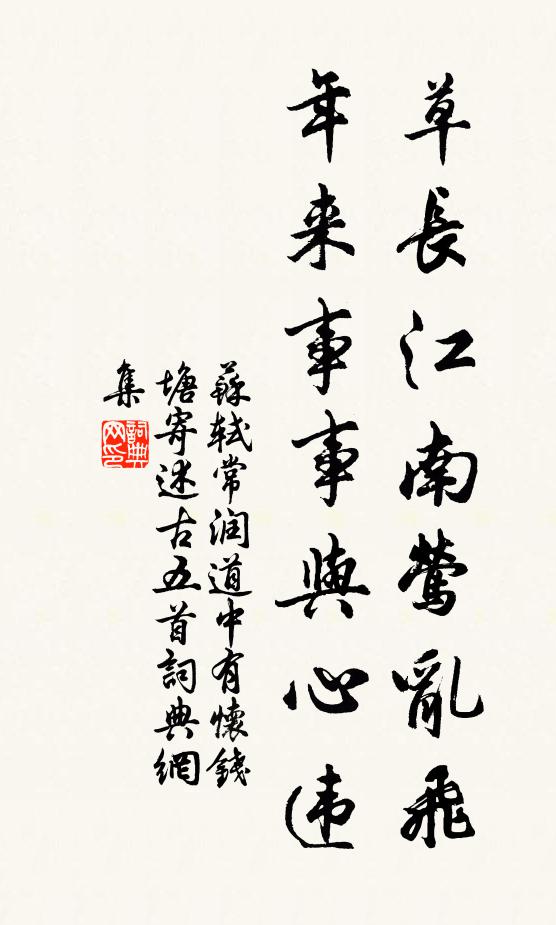 草長江南鶯亂飛
年来事事與心违
蘇軾常润道中有懷錢
塘寄述古五首詞典網
集
詞典
网印